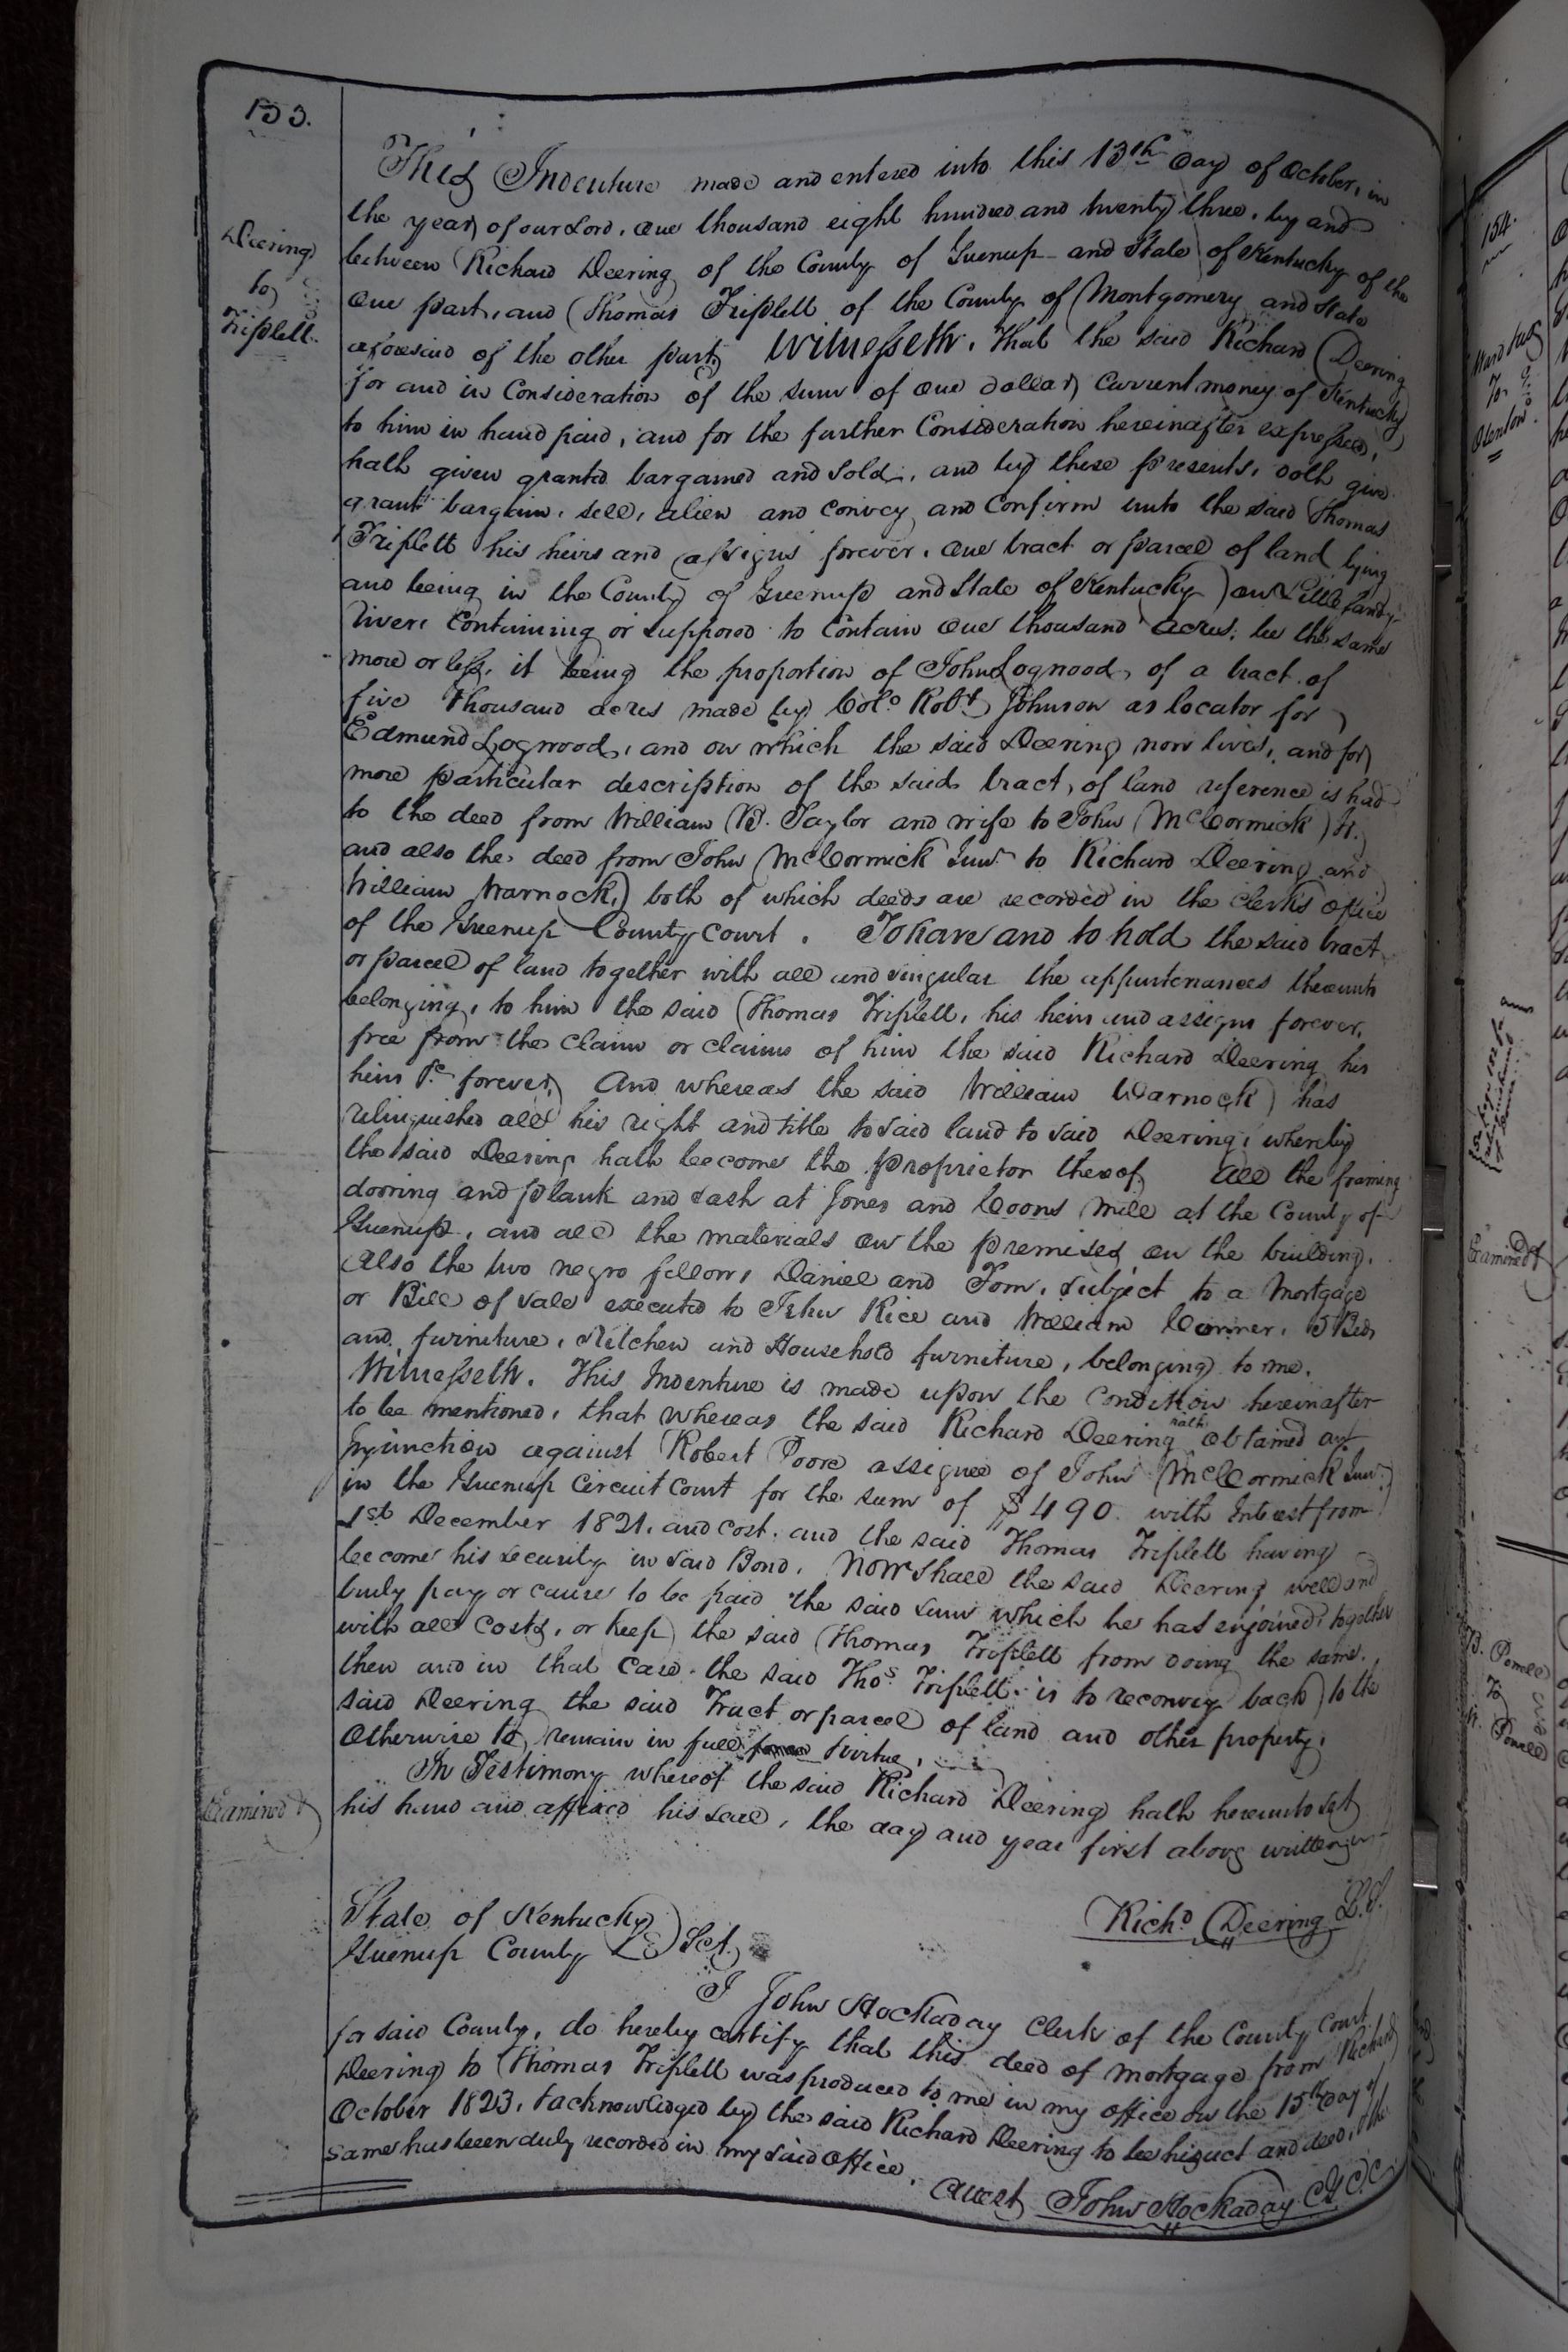 153.
Deering
to
Triplett.
This Indenture made and entered into this 13th day of October, in
the year of our Lord, one thousand eight hundred and twenty three, by and
between Richard Deering of the County of Greenup and State of Kentucky of the
one part, and Thomas Triplett of the County of Montgomery and State
aforesaid of the other part, Witnesseth, That the said Richard Deering
for and in Consideration of the sum of one dollar current money of Kentucky
to him in hand paid, and for the further Consideration hereinafter expressed,
hath given granted bargained and sold, and by these presents, doth give
grant bargain, sell, alien and convey and Confirm unto the said Thomas
Triplett his heirs and assigns forever, one tract or parcel of land lying
and being in the County of Greenup and State of Kentucky on Little Sandy
River, Containing or supposed to Contain one thousand acres, be the same
more or less, it being the proportion of John Lognood, of a tract of
five thousand acres made by Colo. Robt. Johnson as locator for
Edmund Logwood, and on which the said Deering now lives, and for
more particular description of the said tract, of land reference is had
to the deed from William B. Taylor and wife to John McCormick Jr.
and also the deed from John McCormick Junr to Richard Deering and
William Warnock, both of which deeds are recorded in the clerks office
of the Greenup County Court. To have and to hold the said tract
or parcel of land together with all and singular the appurtenances thereunto
belonging, to him the said Thomas Triplett, his heirs and assigns forever,
free from the claim or claims of him the said Richard Deering his
heirs &c forever, And whereas the said William Warnock has
relinquished all his right and title to said land to said Deering, whereby
the said Deering hath become the proprietor thereof, all the framing
dooring and plank and sash at Jones and Coons Mill at the County of
Greenup, and all the materials on the premises on the building.
Also the two negro fellows Daniel and Tom, subject to a Mortgage
or Bill of sale executed to John Rice and William Conner, 5 Beds
and furniture, Kitchen and Household furniture, belonging to me.
Witnesseth. This Indenture is made upon the Condition hereinafter
to be mentioned, that whereas the said Richard Deering hath obtained an
Injunction against Robert Poore assignee of John McCormick Junr.
in the Greenup Circuit Court for the sum of $490 with Interest from
1st December 1821, and cost, and the said Thomas Triplett having
become his security in said Bond, Now shall the said Deering well and
truly pay or cause to be paid the said sum which he has enjoined, together
with all costs, or keep the said Thomas Triplett from doing the same,
then and in that case the said Thos Triplett is to reconvey back to the
said Deering the said Tract or parcel of land and other property,
Otherwise to remain in full virtue,
In Testimony whereof the said Richard Deering hath hereunto set
his hand and affixed his seal, the day and year first above written
Examined
Richd Deering L.S.
State of Kentucky
Greenup County Sct.
I John Hockaday Clerk of the County Court
for said County, do hereby certify that this deed of mortgage from Richard
Deering to Thomas Triplett was produced to me in my office on the 15th day of
October 1823, & acknowledged by the said Richard Deering to be his act and deed, & the
same has been duly recorded in my said office.
Attest John Hockaday C.G.C.C.
154.
To
Examined
Powell
To
Powell